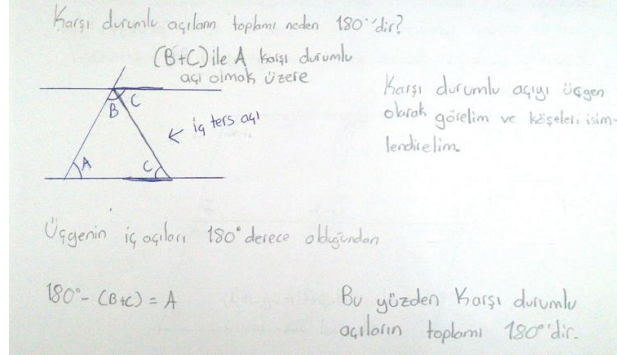 Karşı durumlu açıların toplamı neden 180°'dir?
(B+C) ile A karşı durumlu
açı olmak üzere
B
C
← iç ters açı
A
C
Karşı durumlu açıyı üçgen
olarak görelim ve köşeleri isim-
lendirelim.
Üçgenin iç açıları 180° derece olduğundan
180° - (B+C) = A
Bu yüzden Karşı durumlu
açıların toplamı 180°'dir.